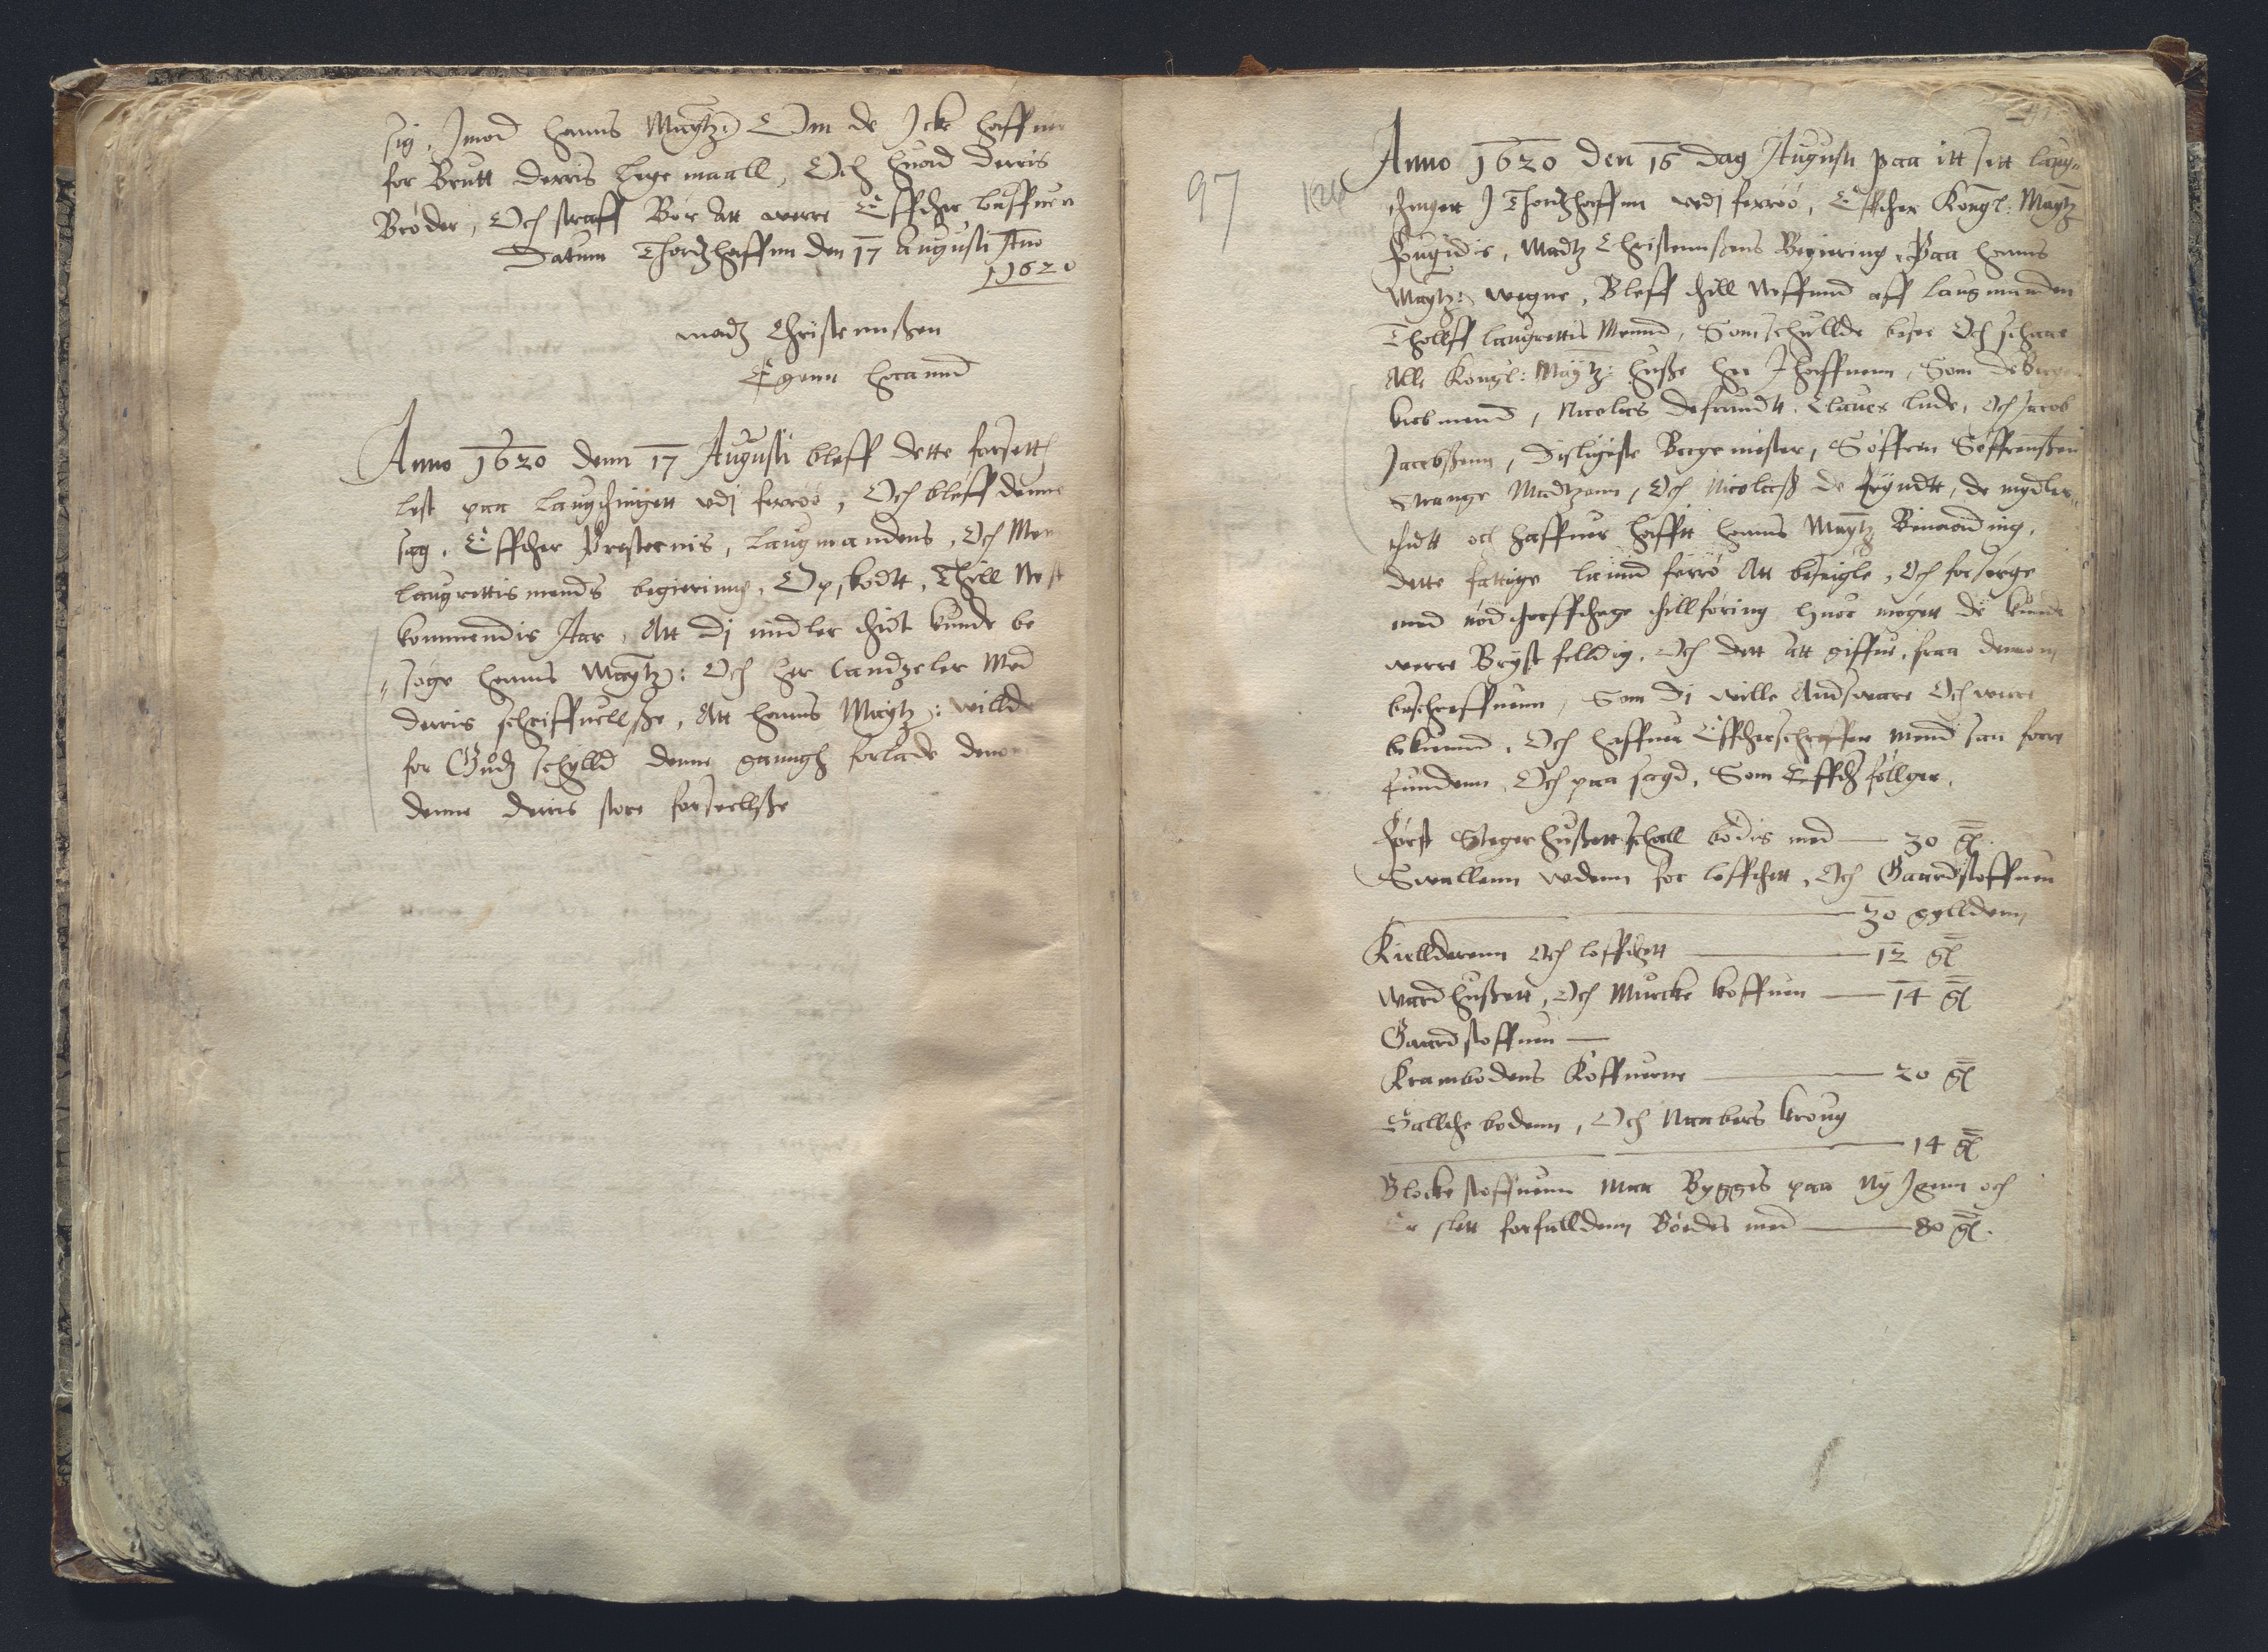 sig, Imod hanns Maytz: Om de Icke haffuer
for Brutt derris Lege maall, Och huad derris
Brøder, Och straff Bør Att werre Effther luffuen
Datum Thordzhaffnn den 17 Augusti Ano
1620
madz Christennßen
Egenn haanndt
Anno 1620 denn 17 Augusti bleff dette forsett
lest paa Laugthingett vdj ferrøø, Och bleff denne
sag, Effther Presternis, Laugmandens, Och Men
Laugrettismends begiering, Opskodtt, Thill Nest
kommendis Aar, Att Dj midler thidt kunde be
søge hanns Maytz: Och her Candzeler Med
derris schriffuellße, Att hanns Maytz: willde
for Gudz schylld denne ganngh forlade denom
denne derris store forseellße
97
Anno 1620 den 16 Dag Augusti paa itt sett Laug-
thingett I Thordzhaffnn wdj ferrøø, Effther Kongl: Maytz
fougidis, Madtz Christennßens Begiering, Paa hanns
Maytz: wegne, Bleff thill Neffnnd aff laugmanden
Thollff laugrettis Mennd, Som schullde beßee Och schaae
Alle Kongl: Maytz: huße her I haffnenn, Som
kiebmend, Nicolaes defnundtt, Clauer lude, Och Jacob
Jacobßenn, Disligeste Borgemester, Søffren Søffrenßen
Strange Madtzenn, Och Nicolaß de fryndtt, de mydler-
thidtt och haffuer hafftt hanns Maytz Benaading,
dette fattige lannd ferrø Att beseigle, Och forsørge
med nødthørfftige thillføring huor megett de kunde
werre Bryst felldig, Och dett Att giffue, fraa denom
beschreffuenn, Som Dj wille Andsware Och were
bekiennd, Och haffuer Efftherschreffne mend saa forre
fundenn, Och paa sagd, Som Effth føllger,
først Steger hußett schall bødis med — 30 gl
Swallenn wdenn for lofftthett, Och Gaardstoffuen
30 gylldenn
Kiellderenn Och lofftthett — 12 gl
wardhußett, Och Murcke koffuen — 14 gl
Gaardstoffuen —
Krambodens Koffuerne — 20 gl
Sallthe bodenn, Och Naabers kroug
— 14 gl
Blocke stoffuenn Maa Byggis paa Ny Igenn och
Er slett forfalldenn Bødes med — 80 gl.